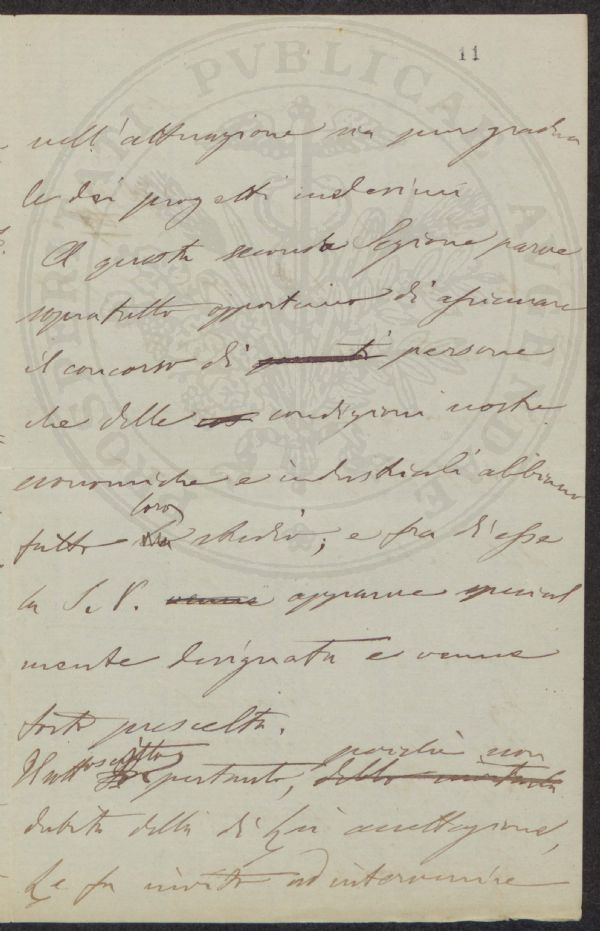 11
PROSPERITATI PVBLICAE AVGENDAE
nell'attuazione sia pur gradua
le dei progetti medesimi
A questa seconda Sezione parve
sopratutto opportuno di assicurare
il concorso di persone
che delle condizioni nostre
economiche e industriali abbiano
fatto loro studio; e fra di esse
la S. V. venne apparve special
mente designata e venne
tosto prescelta.
Il sottoscritto pertanto, poichè non
dubita della di Lei accettazione,
Le fa invito ad intervenire